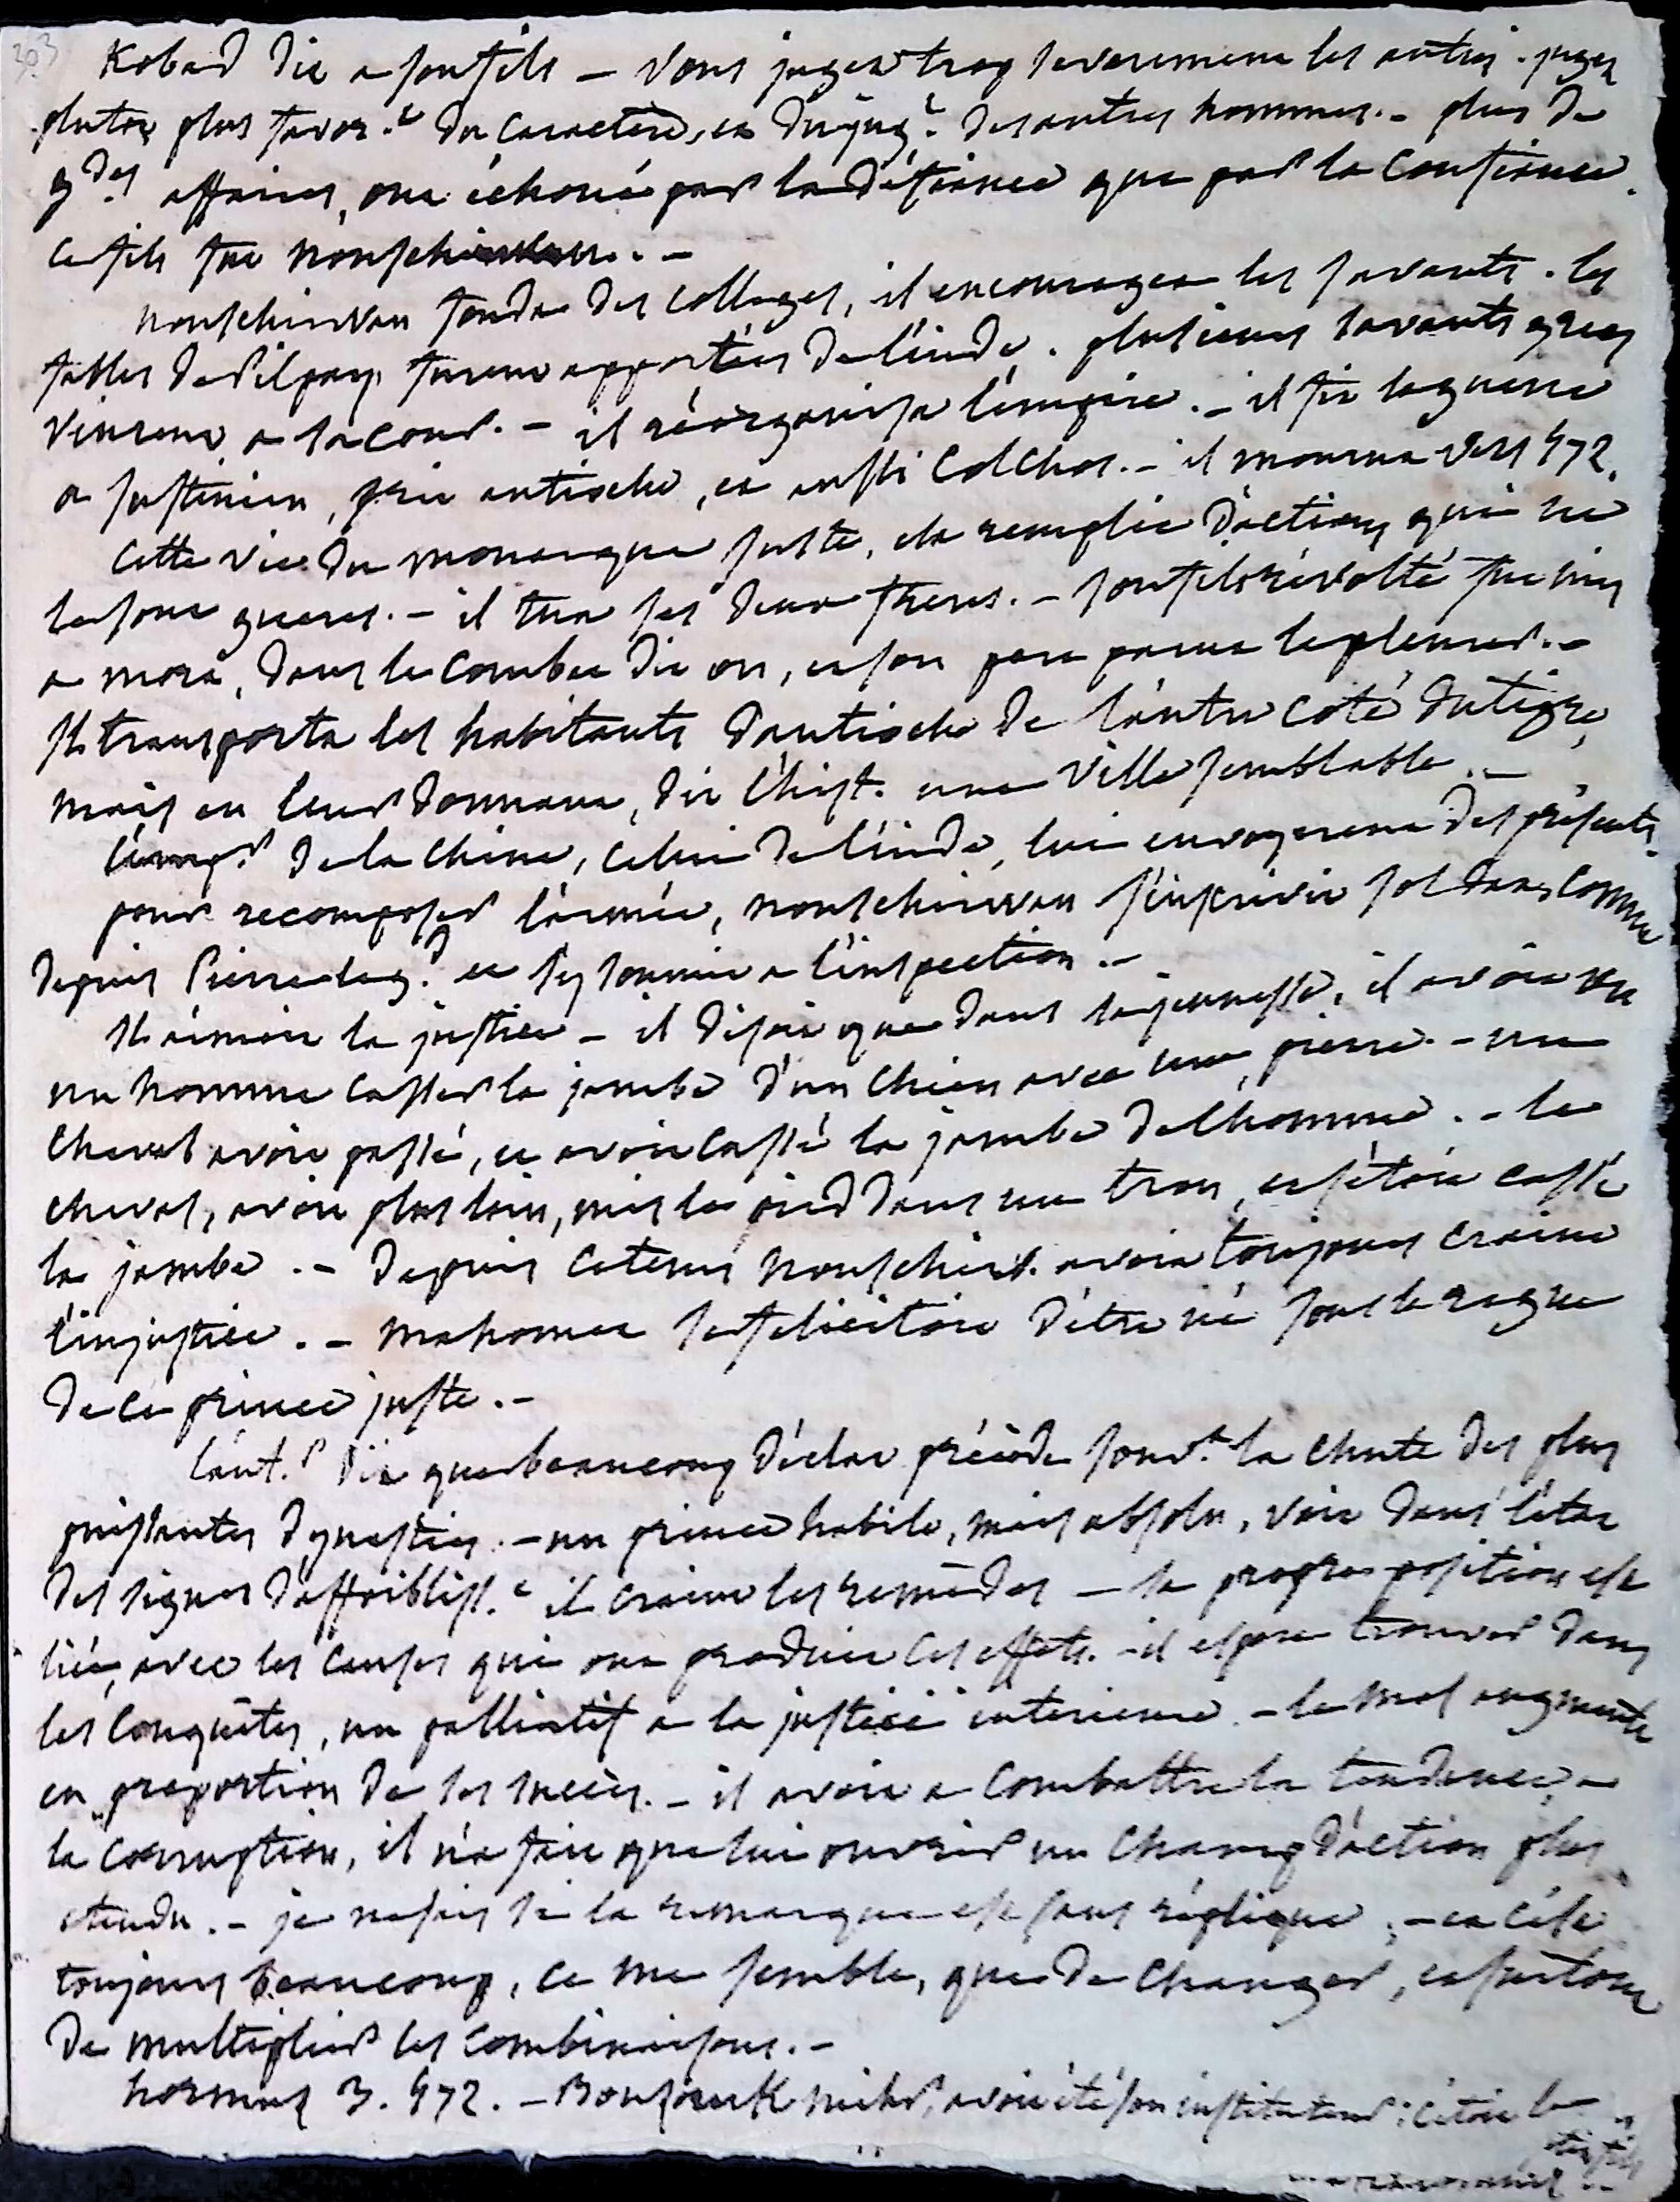 303
Kobad dit a son fils – vous jugez trop severement les autres. jugez
plutot plus favor.t du caractere, et du jug.t des autres hommes. – plus de
g.des affaires, ont échoué par la défiance que par la confiance.
ce fils fut Nouschirvan. –
nouschirvan fonda des colleges, il encouragea les savants. les
fables de Pilpay furent apportées de l'inde. plusieurs savants grecs
vinrent a sa cour. – il réorganisa l'empire. – il fit la guerre
a Justinien, prit antioche, et aussi Colchos. – il mourut vers 572.
cette vie du monarque juste, est remplie d'actions qui ne
le sont gueres. – il tua ses deux freres. – son fils révolté fut mis
a mort, dans le combat dit on, et son pere parut le pleurer. –
Il transporta les habitants d'antioche de l'autre coté du tigre,
mais en leur donnant, dit l'hist. une ville semblable. –
l'emp.r de la chine, celui de l'inde, lui envoyerent des présents.
pour recomposer l'armée, nouschirvan s'inscrivit soldat, comme
depuis Pierre le g.d et s'y soumit a l'inspection. –
Il aimoit la justice – il disoit que dans sa jeunesse, il avoit vu
un homme casser la jambe d'un chien avec une pierre. – un
cheval avoit passé, et avoit cassé la jambe de l'homme. – le
cheval, avoit plus loin, mis le pied dans un trou, et s'étoit cassé
la jambe. – depuis ce tems nouschirv. avoit toujours craint
l'injustice. – mahomet se felicitoit d'etre né sous le regne
de ce prince juste. –
l'aut.r dit que beaucoup d'éclat précède souv.t la chute des plus
puissantes dynasties. – un prince habile, mais absolu, voit dans l'état
des signes d'affoibliss.t il craint les remèdes – sa propre position est
liée, avec les causes qui ont produit ces effets. – il espere trouver dans
les conquêtes, un palliatif a la justice interieure. – le mal augmente
en proportion de ses succès. – il avoit a combattre la tendance, a
la corruption, il n'a fait que lui ouvrir un champ d'action plus
etendu. – je ne sais si la remarque est sans réplique; – et c'est
toujours beaucoup, ce me semble, que de changer, et surtout
de multiplier les combinaisons. –
hormuz 3. 572. – Bouzourk mihr, avoit été son instituteur; c'étoit le